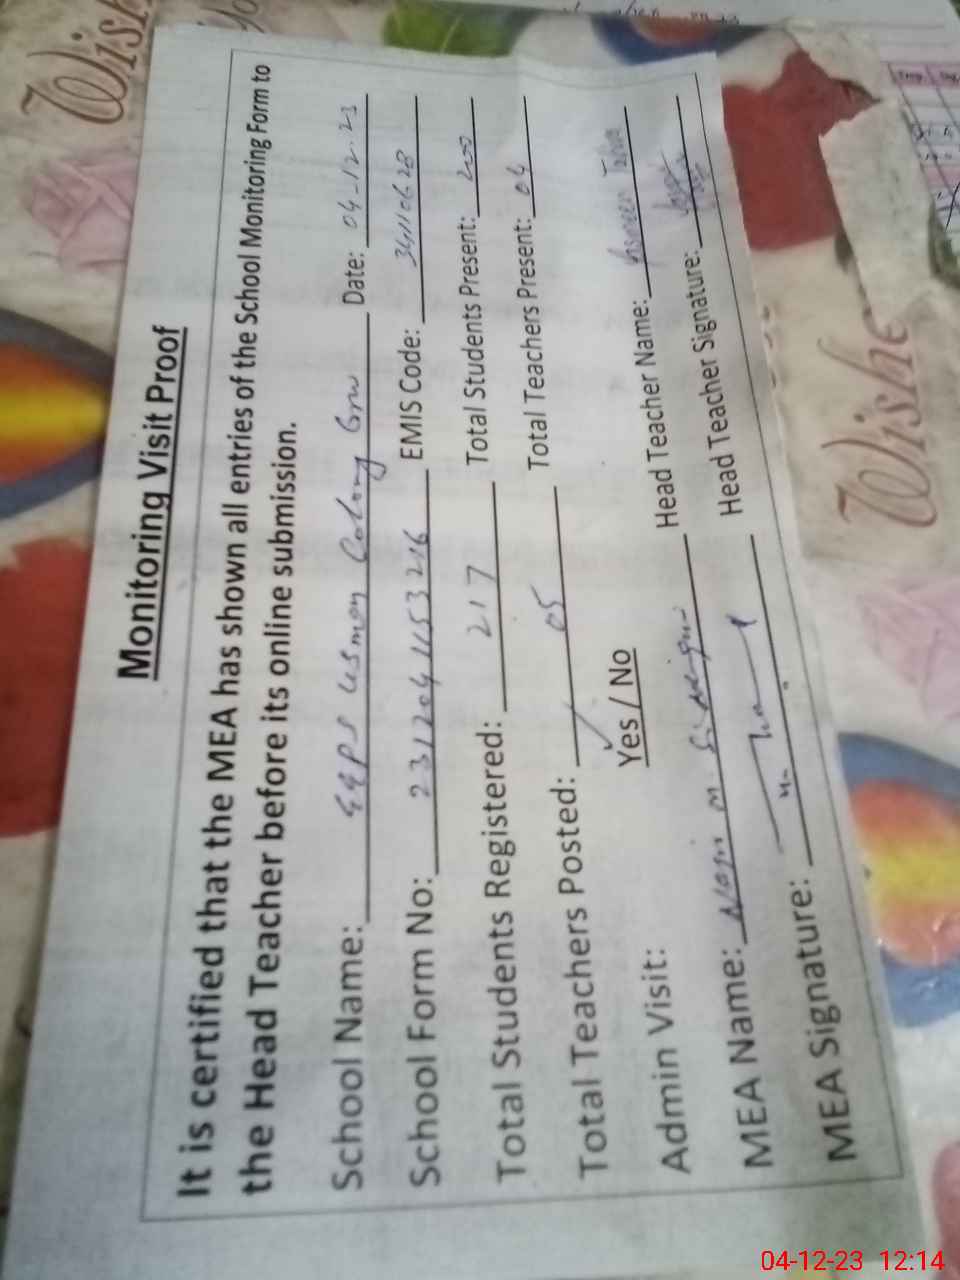 Monitoring Visit Proof
It is certified that the MEA has shown all entries of the School Monitoring Form to
the Head Teacher before its online submission.
School Name: GGPS Usman Colony Grw Date: 04-12-23
School Form No: 231204 1153 216 EMIS Code: 34110628
Total Students Registered: 217 Total Students Present: 200
Total Teachers Posted: 05 Total Teachers Present: 04
Admin Visit: Yes / No
MEA Name: M. Head Teacher Name:
MEA Signature: Head Teacher Signature:
Wishe
Wish
04-12-23 12:14